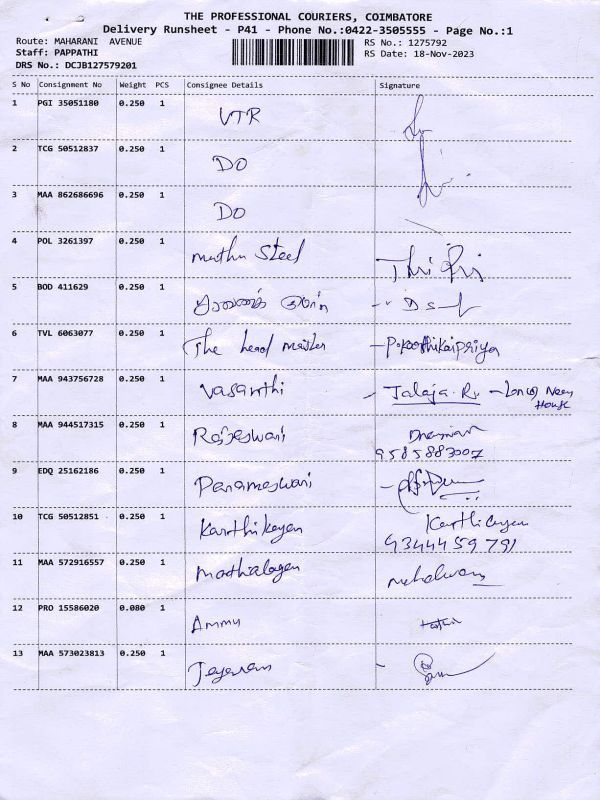 THE PROFESSIONAL COURIERS, COIMBATORE
Delivery Runsheet - P41 - Phone No.:0422-3505555 - Page No.:1
Route: MAHARANI AVENUE
RS No.: 1275792
Staff: PAPPATHI
RS Date: 18-Nov-2023
DRS No.: DCJB127579201
S No Consignment No Weight PCS Consignee Details Signature
1 PGI 35051180 0.250 1 VTR
2 TCG 50512837 0.250 1 DO
3 MAA 862686696 0.250 1 DO
4 POL 3261397 0.250 1 muthu Steel
5 BOD 411629 0.250 1
6 TVL 6063077 0.250 1 The head master
7 MAA 943756728 0.250 1 Vasanthi - Jalaja. R
House
8 MAA 944517315 0.250 1 Rajeswari
9585883007
9 EDQ 25162186 0.250 1 Parameswari
10 TCG 50512851 0.250 1 Karthikeyan Karthikeyan
9344459791
11 MAA 572916557 0.250 1 Mathialagan
12 PRO 15586020 0.080 1 Ammu
13 MAA 573023813 0.250 1 Jeyaram